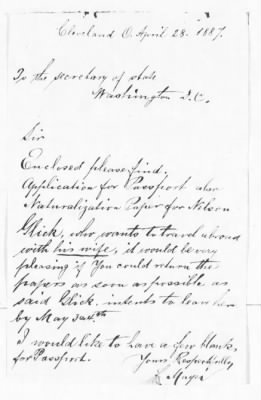 Cleveland O. April 28. 1887.
To the secretary of state
Washington D.C.
Sir
Enclosed please find
Application for Passport also
Naturalization Paper for Nelson
Glick, who wants to travel abroad
with his wife, it would be very
pleasing if You could return the
papers as soon as possible as
said Glick intents to leave here
by May
I would like to have a few blanks
for Passport.
Yours Respectfully